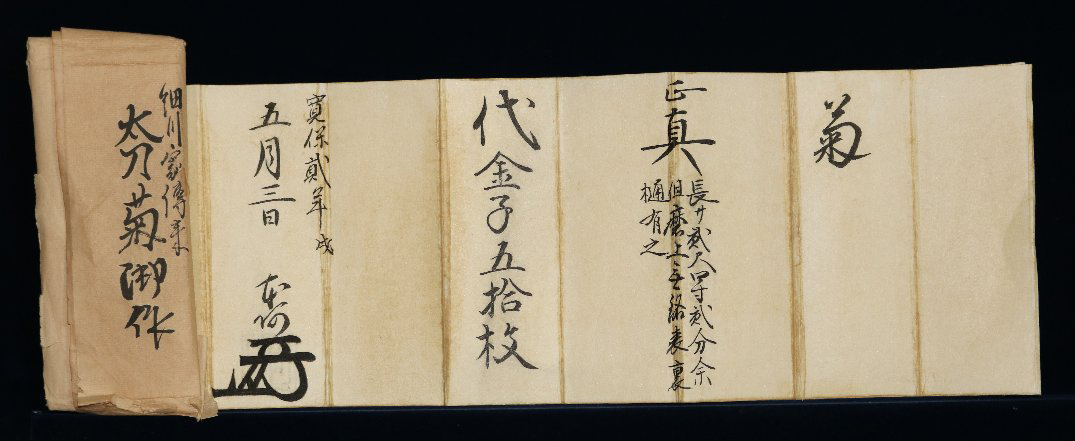 菊
正真
長サ貳尺四寸貳分余
但磨上無銘表裏
樋有之
代金子五拾枚
寛保貳年戌
五月三日
本阿
細川家傳来
太刀菊御作